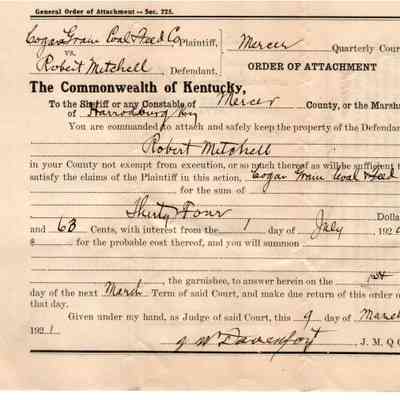 General Order of Attachment — Sec. 725.
Cogar Grain Coal & Feed Co Plaintiff,
vs.
Robert Mitchell, Defendant.
Mercer Quarterly Cour
ORDER OF ATTACHMENT
The Commonwealth of Kentucky,
To the Sheriff or any Constable of Mercer County, or the Marsha
of Harrodsburg Ky
You are commanded to attach and safely keep the property of the Defendan
Robert Mitchell
in your County not exempt from execution, or so much thereof as will be sufficient t
satisfy the claims of the Plaintiff in this action, Cogar Grain Coal & Feed
for the sum of
Thirty Four Dolla
and 63 Cents, with interest from the 1 day of July, 192
$ for the probable cost thereof, and you will summon
, the garnishee, to answer herein on the 1st
day of the next March Term of said Court, and make due return of this order o
that day.
Given under my hand, as Judge of said Court, this 9 day of March
1921
J W Davenport, J. M. Q C